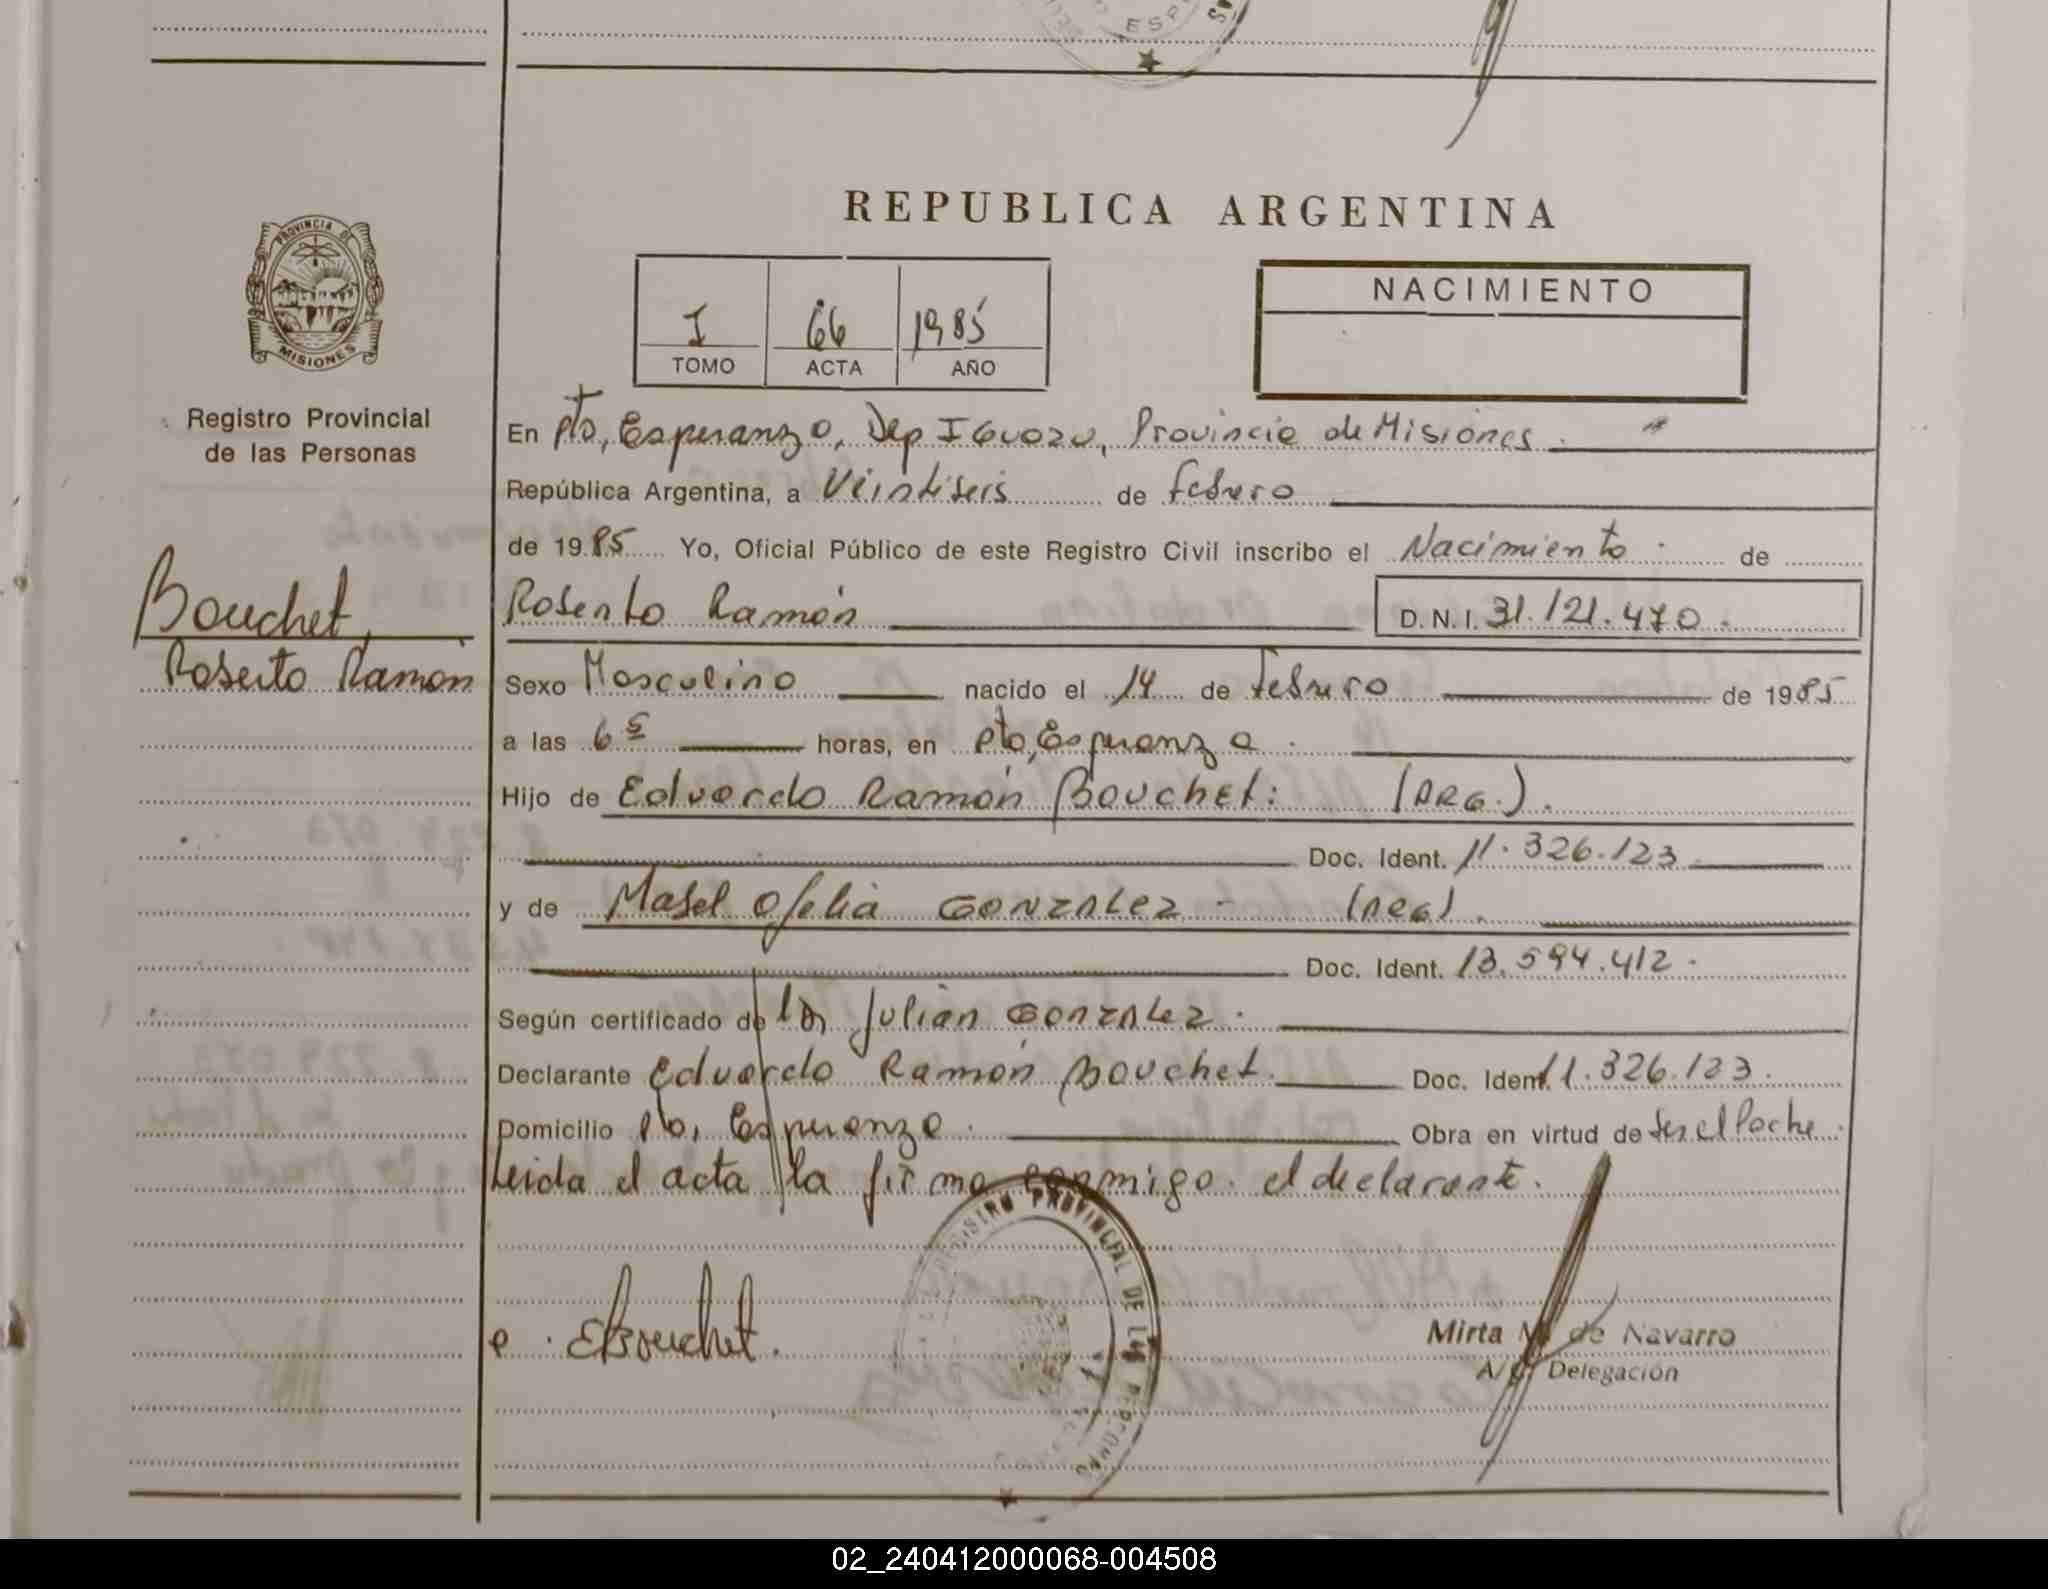 ESP
REPUBLICA ARGENTINA
PROVINCIA DE
MISIONES
Registro Provincial
de las Personas
I 66 1985
TOMO ACTA AÑO
NACIMIENTO
En Pto, Esperanza, Dep Iguazu, Provincia de Misiones.
República Argentina, a Veintiseis de febrero
de 1985 Yo, Oficial Público de este Registro Civil inscribo el Nacimiento de
Bouchet,
Roberto Ramón
Roberto Ramón D.N.I. 31.121.470.
Sexo Masculino nacido el 14 de Febrero de 1985
a las 6 horas, en Pto, Esperanza.
Hijo de Eduardo Ramón Bouchet: (ARG.).
Doc. Ident. 11.326.123
y de Mabel Ofelia GONZALEZ - (ARG).
Doc. Ident. 13.594.412.
Según certificado de Julian GONZALEZ.
Declarante Eduardo Ramón Bouchet. Doc. Ident. 11.326.123.
Domicilio Pto, Esperanza. Obra en virtud de ser el Padre.
Leida el acta la firma conmigo el declarante.
REGISTRO PROVINCIAL DE LAS PERSONAS
EBouchet.
Mirta M. de Navarro
A/C Delegación
02_240412000068-004508